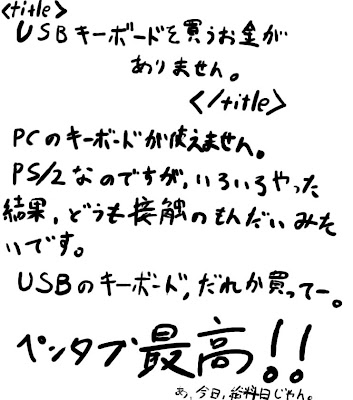 <title>
USBキーボードを買うお金が
ありません。
</title>
PCのキーボードが使えません。
PS/2なのですが,いろいろやった
結果,どうも接触のもんだいみた
いです。
USBのキーボード,だれか買ってー。
ペンタブ最高!!
あ,今日,給料日じゃん。